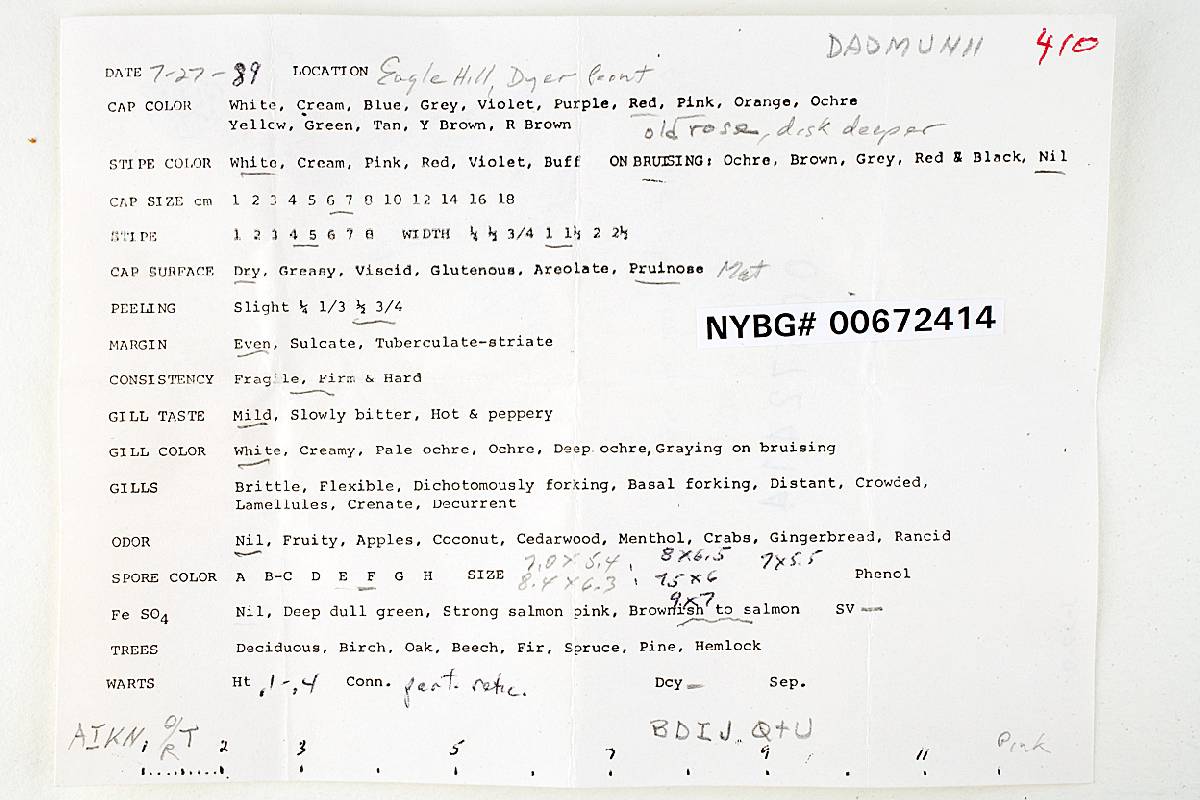 DADMUNII 410
DATE 7-27-89 LOCATION Eagle Hill, Dyer Point
CAP COLOR White, Cream, Blue, Grey, Violet, Purple, Red, Pink, Orange, Ochre
Yellow, Green, Tan, Y Brown, R Brown old rose, disk deeper
STIPE COLOR White, Cream, Pink, Red, Violet, Buff ON BRUISING: Ochre, Brown, Grey, Red & Black, Nil
CAP SIZE cm 1 2 3 4 5 6 7 8 10 12 14 16 18
STIPE 1 2 3 4 5 6 7 8 WIDTH ¼ ½ 3/4 1 1½ 2 2½
CAP SURFACE Dry, Greasy, Viscid, Glutenous, Areolate, Pruinose Mat
PEELING Slight ¼ 1/3 ½ 3/4
NYBG# 00672414
MARGIN Even, Sulcate, Tuberculate-striate
CONSISTENCY Fragile, Firm & Hard
GILL TASTE Mild, Slowly bitter, Hot & peppery
GILL COLOR White, Creamy, Pale ochre, Ochre, Deep ochre, Graying on bruising
GILLS Brittle, Flexible, Dichotomously forking, Basal forking, Distant, Crowded,
Lamellules, Crenate, Decurrent
ODOR Nil, Fruity, Apples, Coconut, Cedarwood, Menthol, Crabs, Gingerbread, Rancid
7.0 x 5.4, 8x6.5 7x5.5
SPORE COLOR A B-C D E F G H SIZE 8.4 x 6.3, 7.5 x 6 Phenol
9x7
Fe SO4 Nil, Deep dull green, Strong salmon pink, Brownish to salmon SV —
TREES Deciduous, Birch, Oak, Beech, Fir, Spruce, Pine, Hemlock
WARTS Ht .1-.4 Conn. part. retic. Dcy — Sep.
AIKN, O/R T BDIJ Q+U Pink
2 3 5 7 9 11